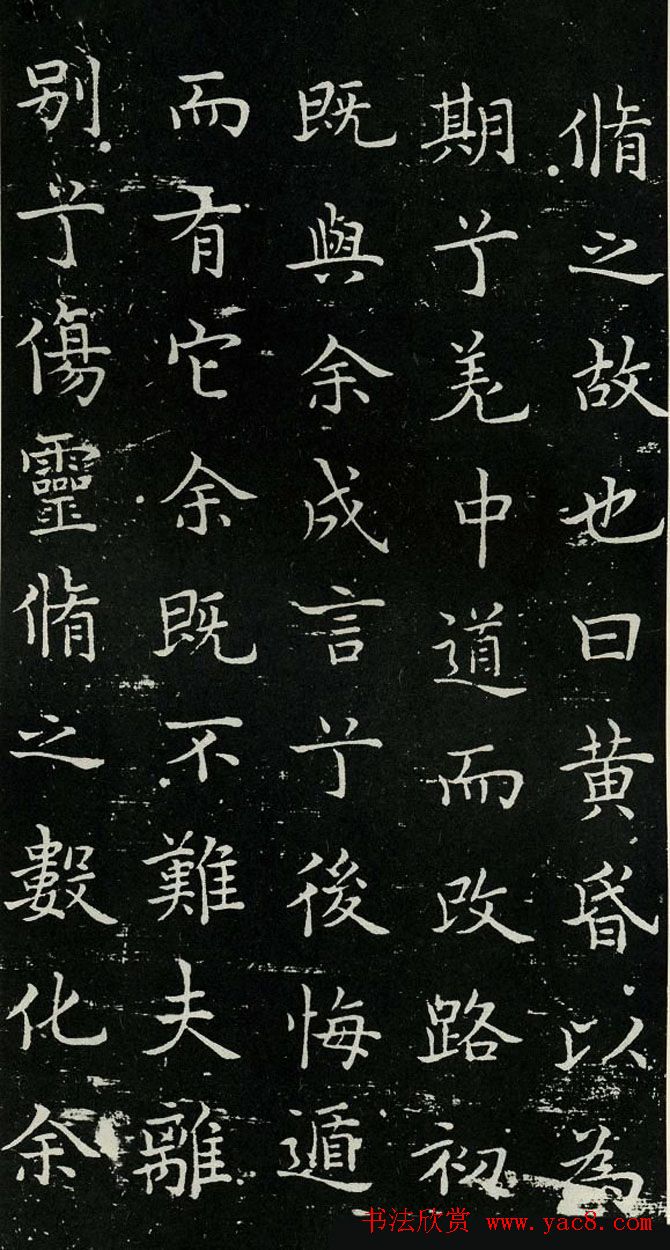 脩之故也曰黃昏以為
期兮羌中道而改路初
既與余成言兮後悔遁
而有它余既不難夫離
別兮傷靈脩之數化余
书法欣赏 www.yac8.com